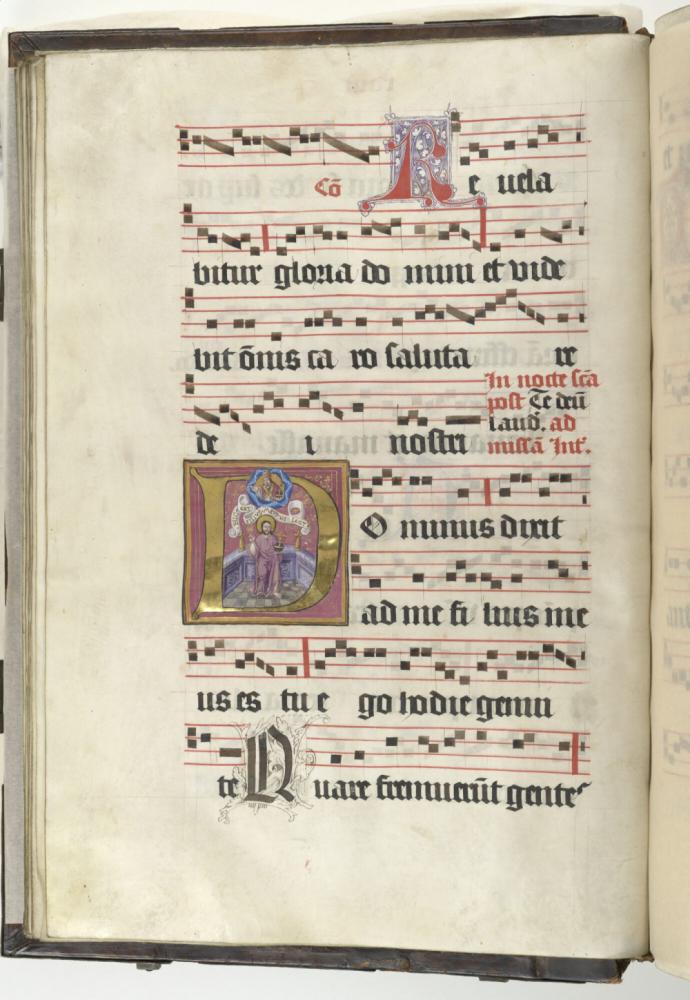 Cō Re uela
bitur gloria do mini et vide
bit ōnis ca ro saluta re
de i nostri
In nocte scā
post Te deū
laud. ad
missā Int.
Do minus dixit
ad me fi lius me
us es tu e go hodie genui
te Quare fremuerūt gentes